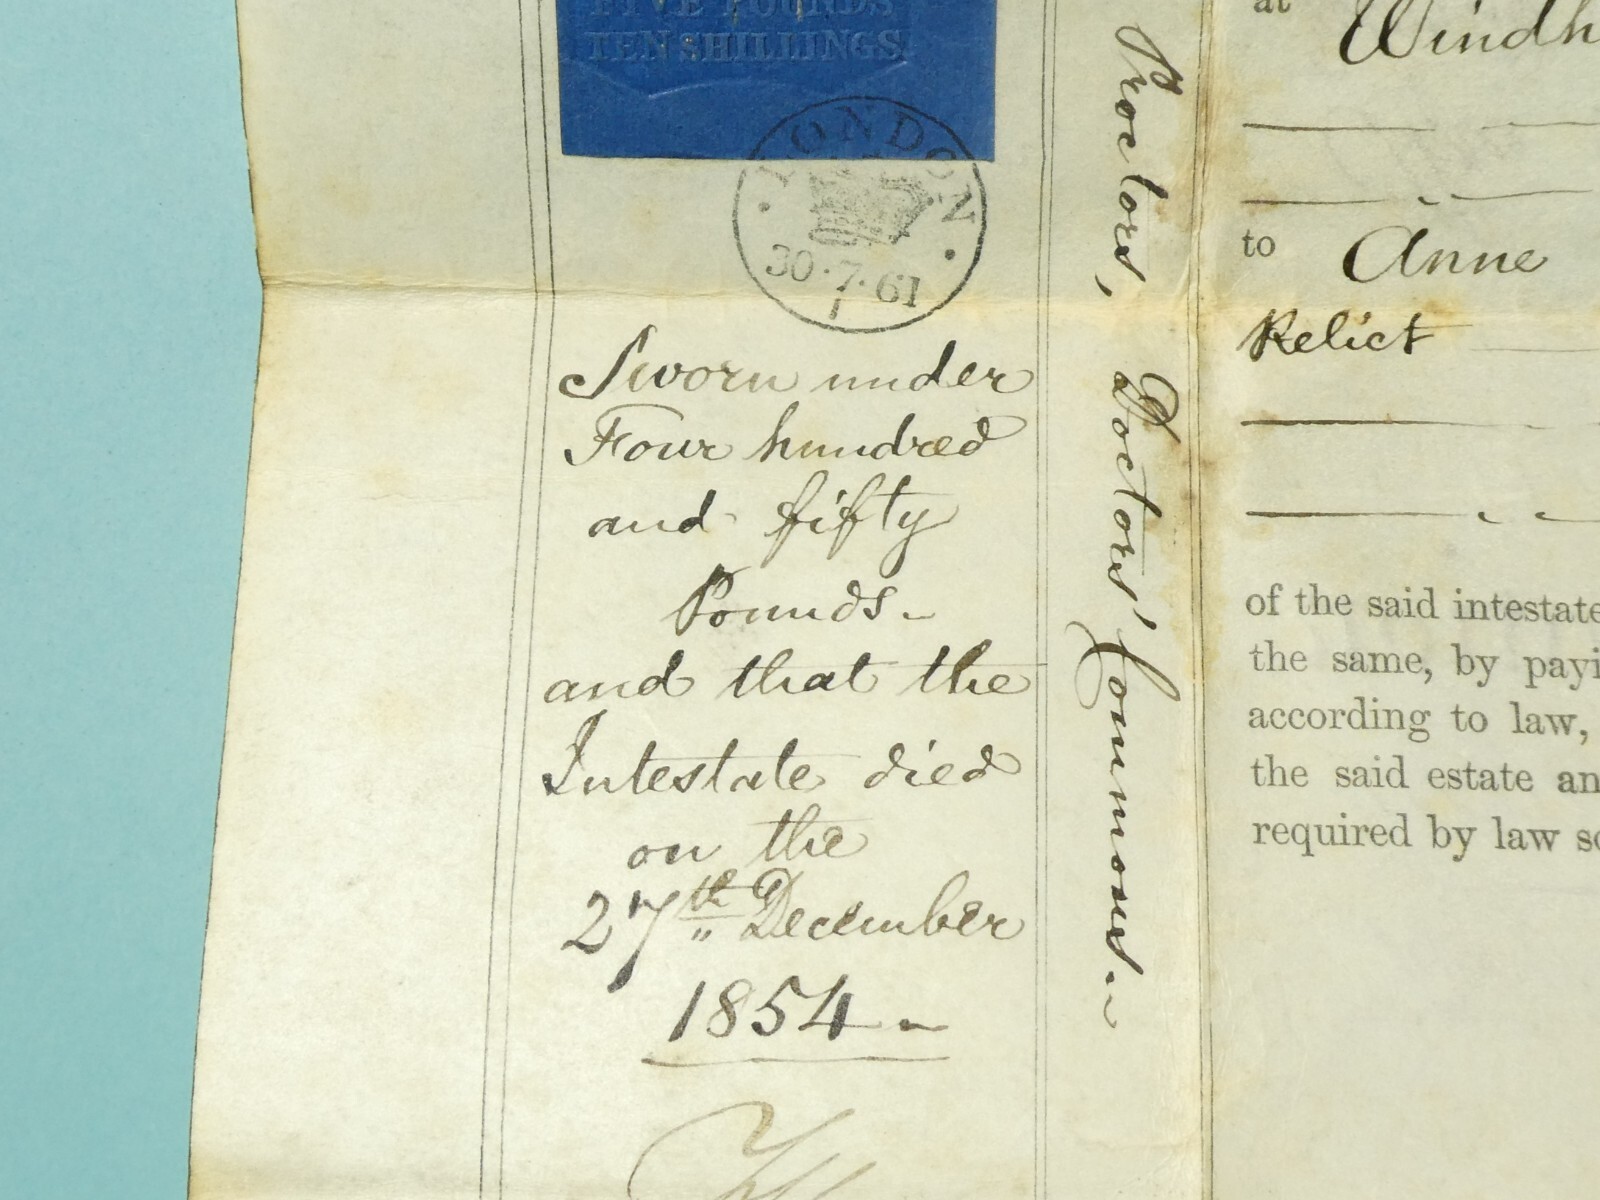 FIVE POUNDS
TEN SHILLINGS
LONDON
30·7·61
1
Sworn under
Four hundred
and fifty
Pounds-
and that the
Intestate died
on the
27th December
1854-
Proctors, Doctors' Commons.
at Windh
to Anne
Relict
of the said intestate
the same, by payi
according to law,
the said estate an
required by law so